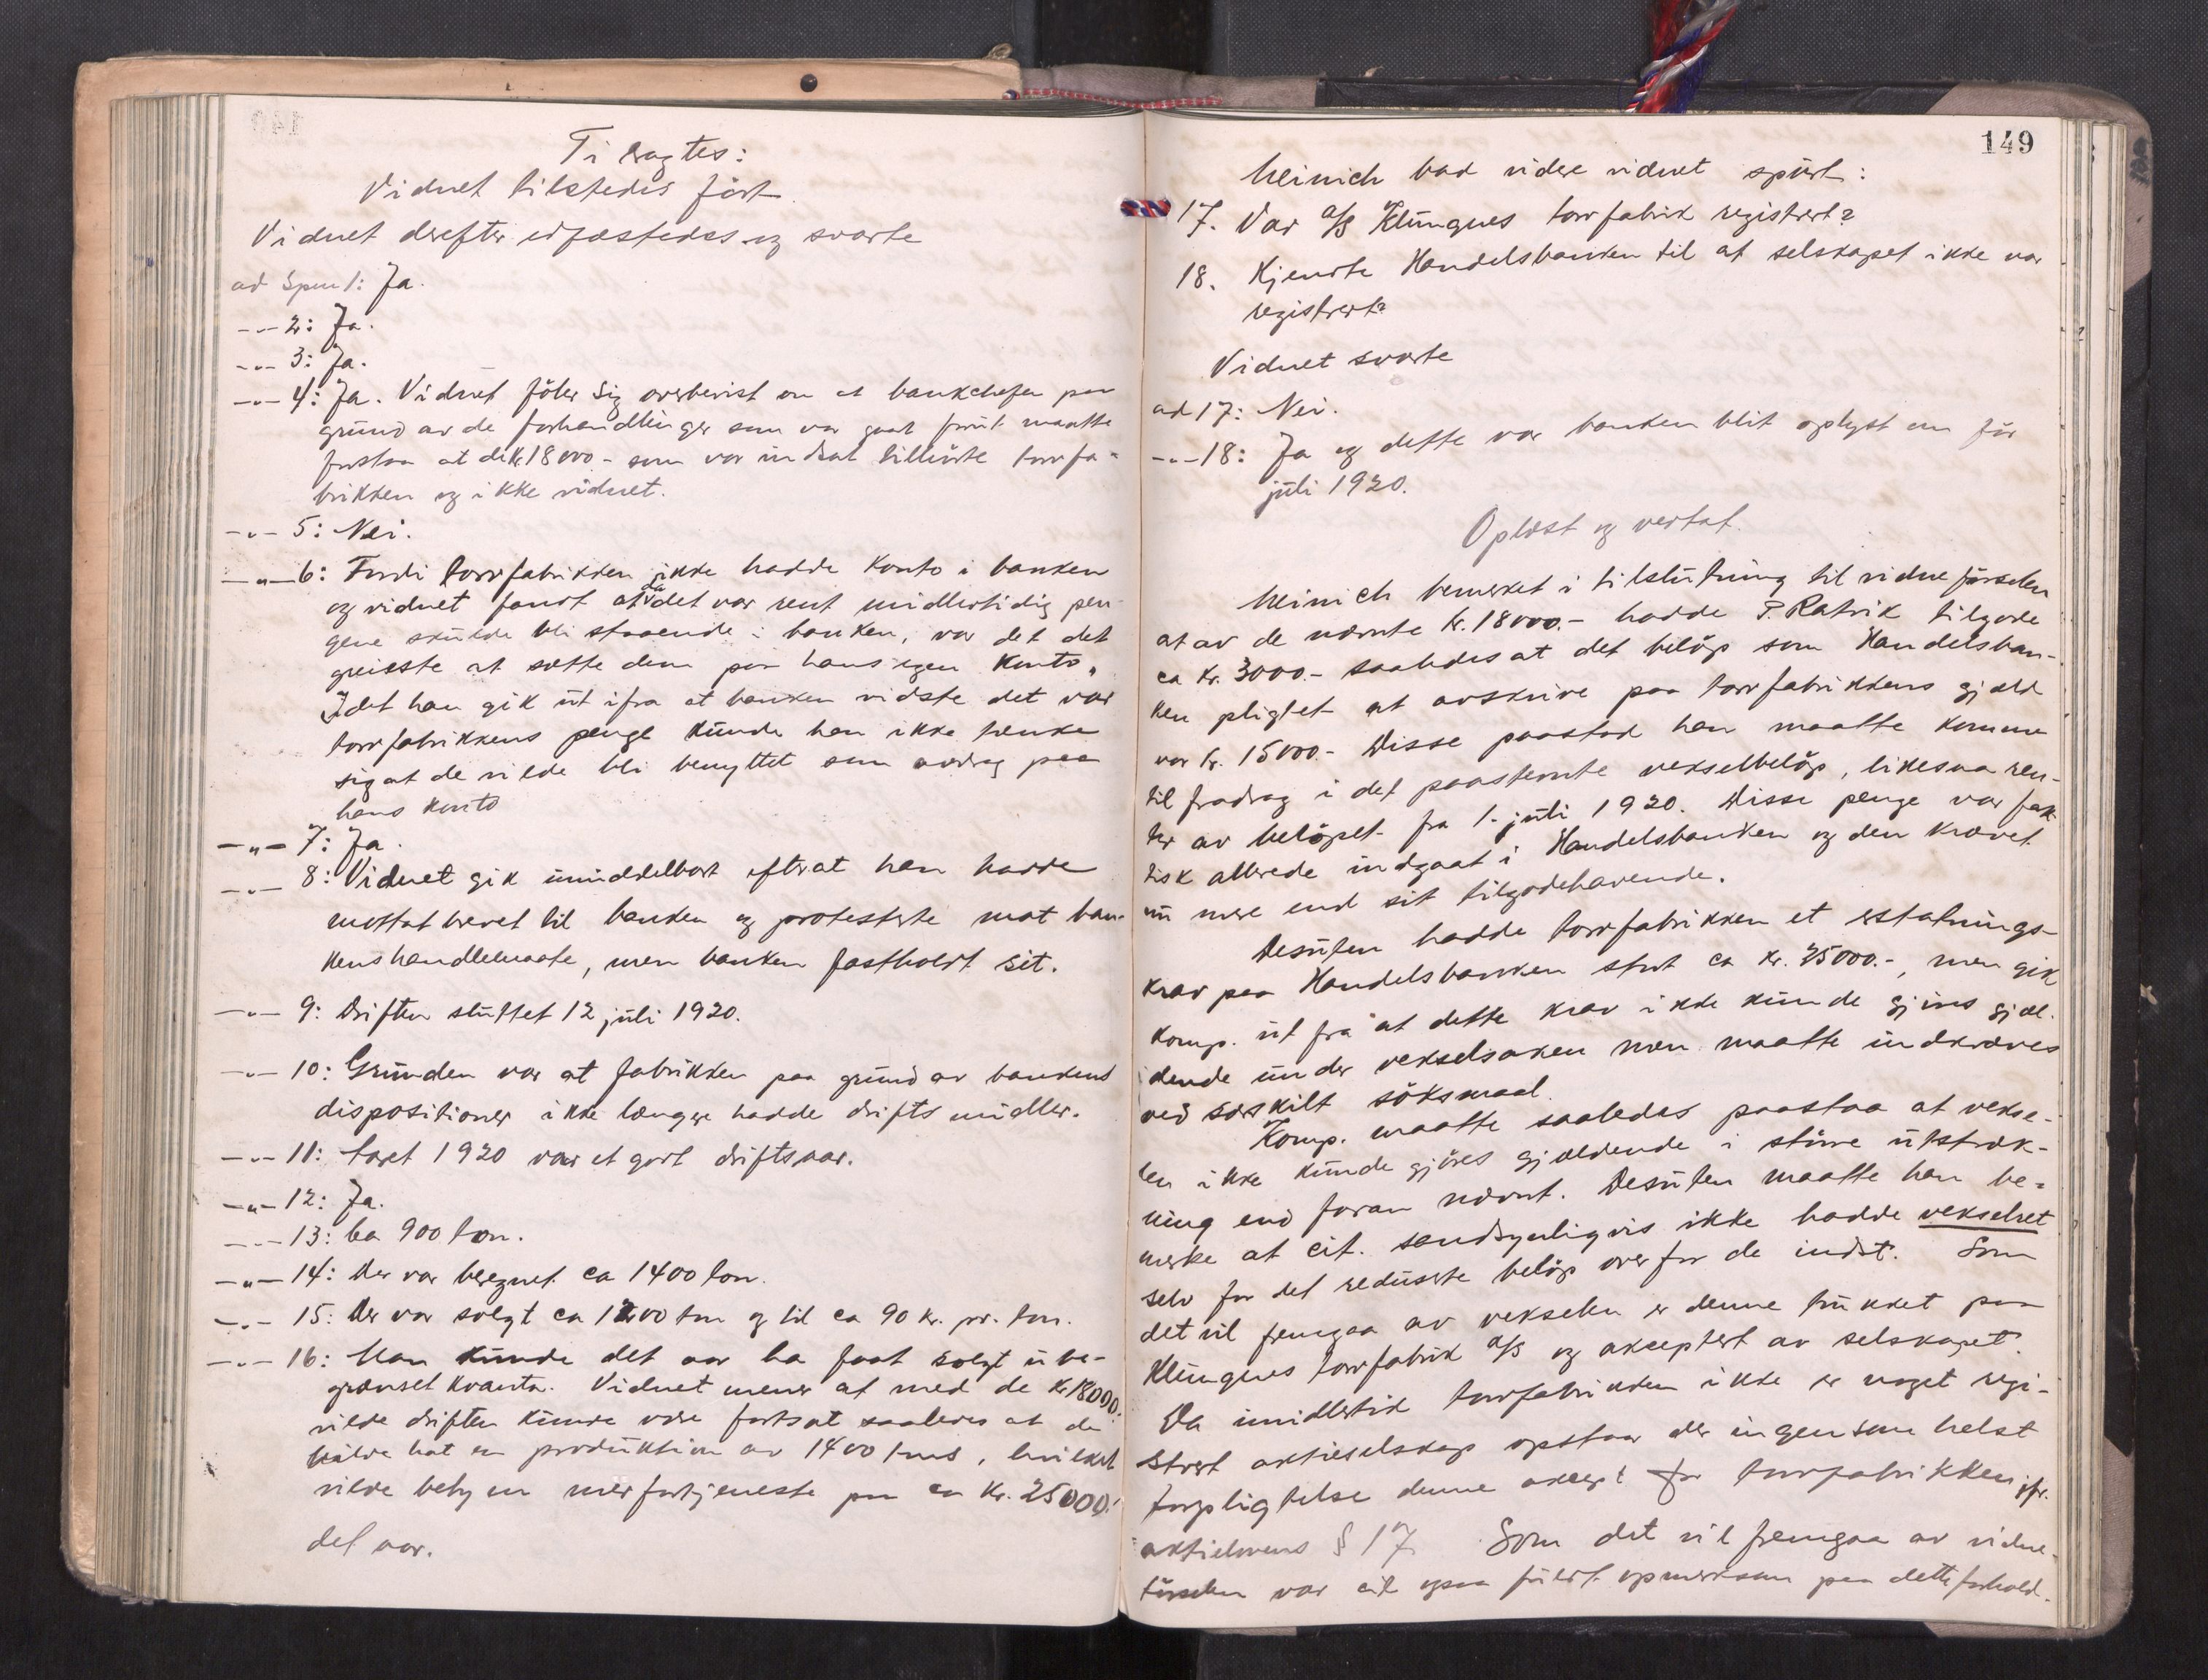 Ti eragtes:
Vidnet tilstedes ført.
Vidnet derefter edfæstedes og svarte
ad Spm 1: Ja.
-"- 2: Ja.
-"- 3: Ja.
-"- 4: Ja. Vidnet føler sig overbevist om at bankchefen paa
grund av de forhandlinger som var gaat forut maatte
forstaa at de kr 18000.- som var indsat tilhørte torvfa-
brikken og ikke vidnet.
-"- 5: Nei.
-"- 6: Fordi torvfabrikken ikke hadde konto i banken
og vidnet fandt at da det var rent midlertidig pen-
gene skulde bli staaende i banken, var det det
greieste at sætte dem paa hans egen konto.
Idet han gik ut ifra at banken vidste det var
torvfabrikkens penge kunde han ikke tænke
sig at de vilde bli benyttet som avdrag paa
hans konto
-"- 7: Ja.
-"- 8: Vidnet gik umiddelbart efterat han hadde
mottat brevet til banken og protesterte mot ban-
kens handlemaate, men banken fastholdt sit.
-"- 9: Driften sluttet 12 juli 1920.
-"- 10: Grunden var at fabrikken paa grund av bankens
dispositioner ikke længer hadde driftsmidler.
-"- 11: Aaret 1920 var et godt driftsaar.
-"- 12: Ja.
-"- 13: Ca 900 ton.
-"- 14: Der var beregnet ca 1400 ton.
-"- 15: Der var solgt ca 1200 ton og til ca 90 kr. pr. ton.
-"- 16: Man kunde det aar ha faat solgt ube-
grænset kvanta. Vidnet mener at med de kr 18000.-
vilde driften kunde være fortsat saaledes at de
hadde hat en produktion av 1400 tons, hvilket
vilde bety en merfortjeneste paa ca kr. 25000.-
det aar.
149
Meinich bad videre vidnet spurt:
17. Var A/S Klungnes torvfabrik registrert?
18. Kjendte Handelsbanken til at selskapet ikke var
registrert?
Vidnet svarte
ad 17: Nei.
-"- 18: Ja og dette var banken blit oplyst om før
juli 1920.
Oplæst og vedtat.
Meinich bemerket i tilslutning til vidneførselen
at av de nævnte kr. 18000.- hadde P. Ratvik tilgode
ca kr. 3000.- saaledes at det beløp som Handelsban-
ken pligtet at avskrive paa torvfabrikkens gjæld
var kr. 15000.- Disse paastod han maatte komme
til fradrag i det paastevnte vekselbeløp, likesaa ren-
ter av beløpet fra 1. juli 1920. Disse penge var fak-
tisk allerede indgaat i Handelsbanken og den krævet
nu mere end sit tilgodehavende.
Desuten hadde torvfabrikken et erstatnings-
krav paa Handelsbanken stort ca kr. 25000.-, men gik
komp. ut fra at dette krav ikke kunde gjøres gjæl-
dende under vekselsaken men maatte indkræves
ved særskilt søksmaal.
Komp. maatte saaledes paastaa at vekse-
len ikke kunde gjøres gjældende i større utstræk-
ning end foran nævnt. Desuten maatte han be-
merke at cit. sandsynligvis ikke hadde vekselret
selv for det reduserte beløp overfor de indst. Som
det vil fremgaa av vekselen er denne trukket paa
Klungnes torvfabrik A/S og akceptert av selskapet.
Da imidlertid torvfabrikken ikke er noget regi-
strert aktieselskap opstaar der ingensomhelst
forpligtelse denne akcept for torvfabrikken jfr.
aktielovens § 17. Som det vil fremgaa av vidne-
førselen var cit ogsaa fuldt opmerksom paa dette forhold.